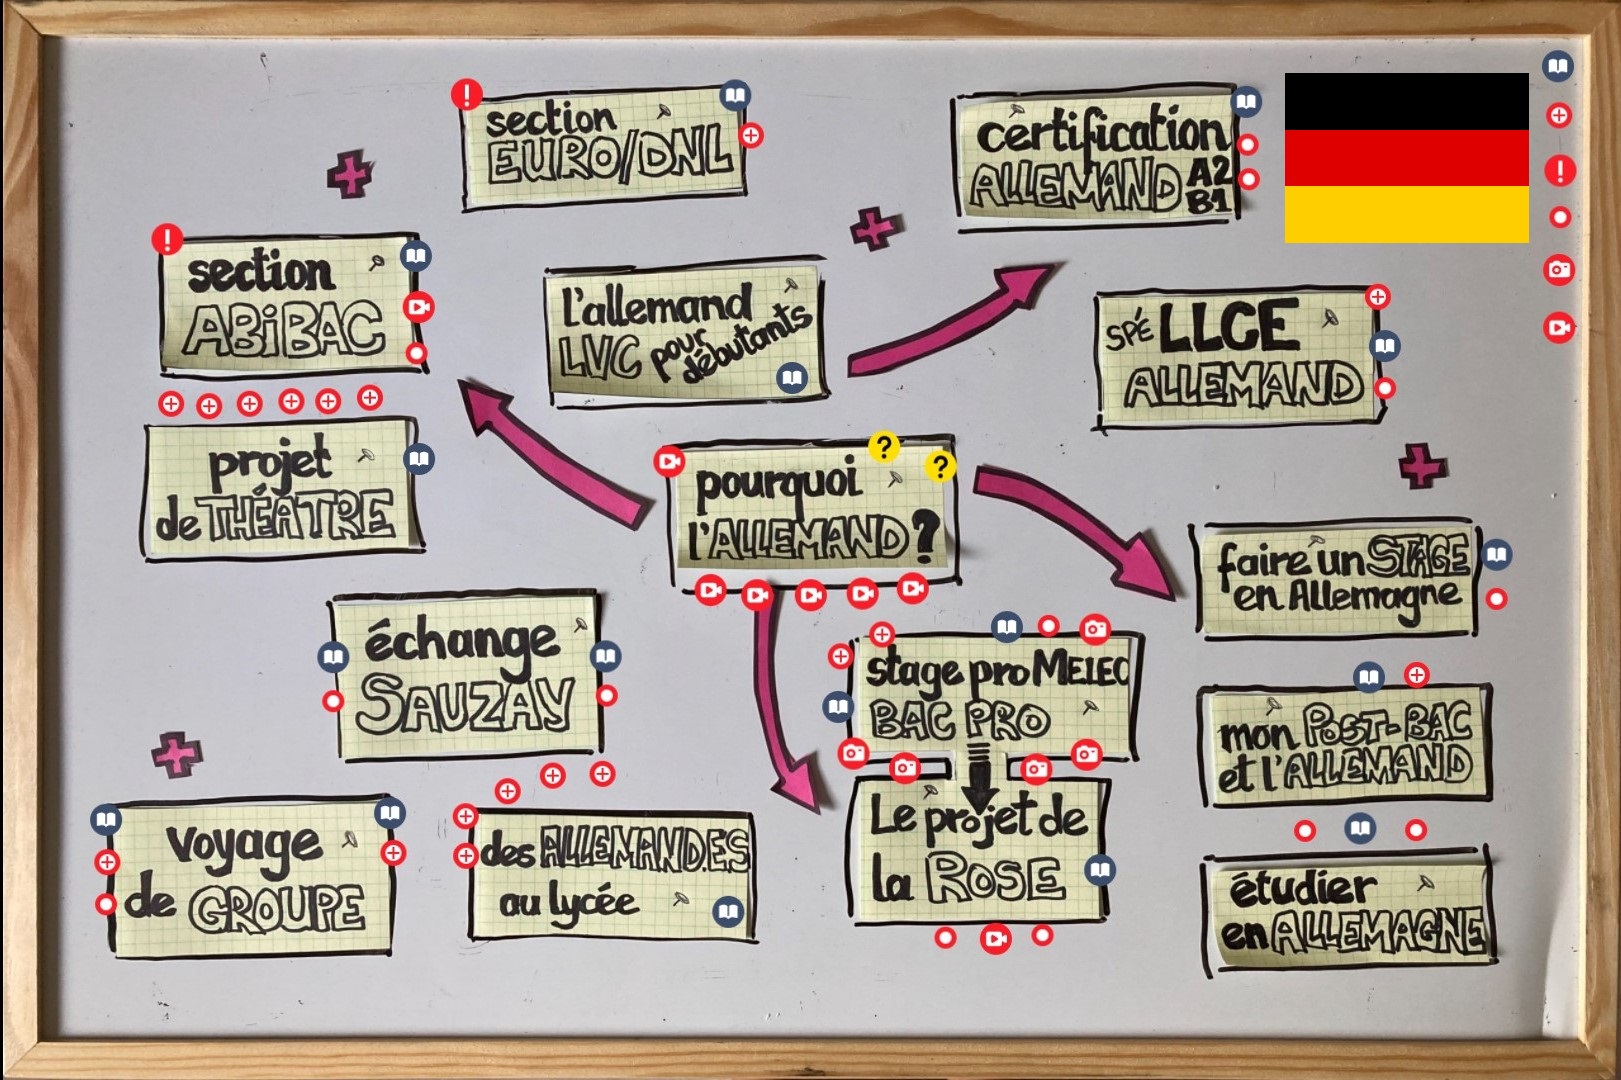 section
EURO/DNL
certification
ALLEMAND A2
B1
section
ABiBAC
l'allemand
LVC pour
débutants
SPÉ LLCE
ALLEMAND
projet
de THÉATRE
pourquoi
l'ALLEMAND ?
faire un STAGE
en Allemagne
échange
SAUZAY
stage pro MELEC
BAC PRO
mon POST-BAC
et l'ALLEMAND
Voyage
de GROUPE
des ALLEMAND.ES
au lycée
Le projet de
la ROSE
étudier
en ALLEMAGNE